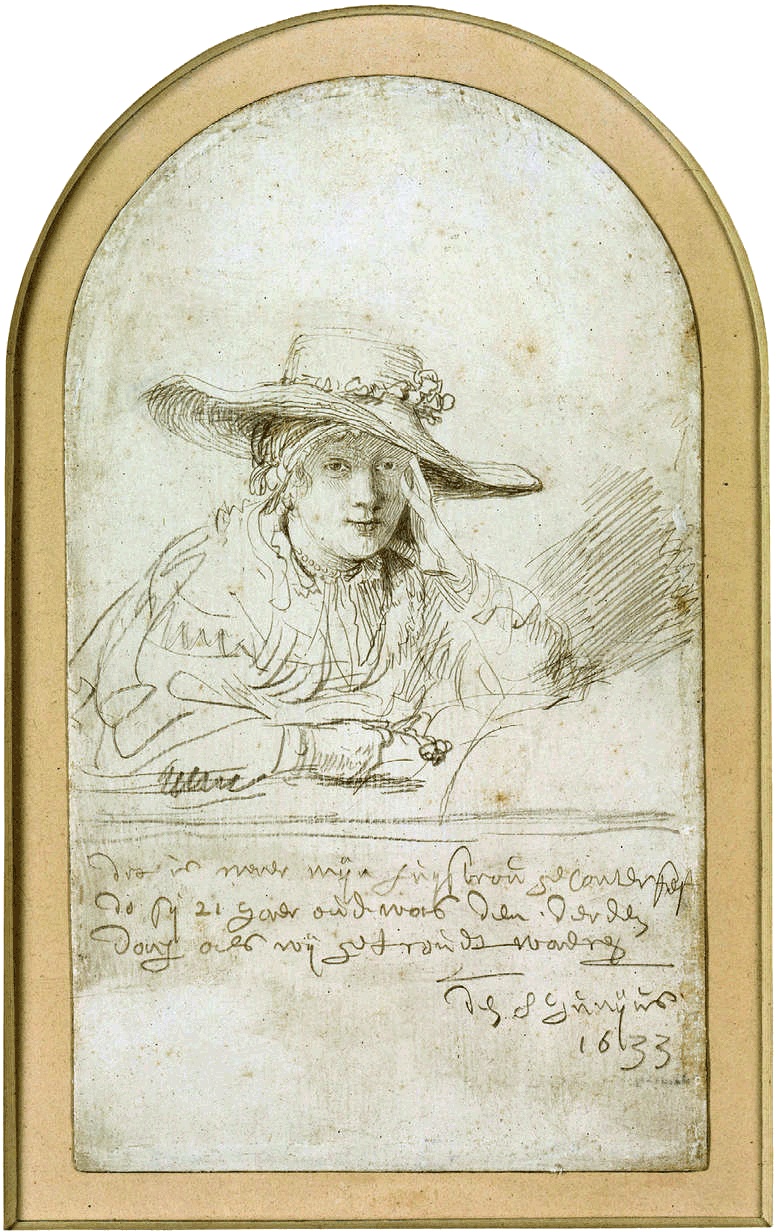 dit is naer mijn huijsvrou geconterfeit
do sij 21 jaer oud was den derden
dach als wij getroudt waeren
den 8 junijus
1633